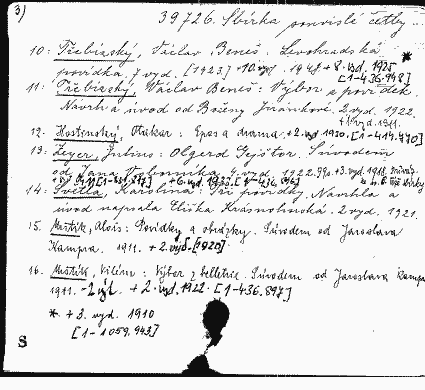 3)
39726. Sbírka povislé četby
10: Třebízský, Václav Beneš. Levohradská *
povídka. 7. vyd. [1923] + 10. vyd. 1948 + 8. vyd. 1925
[1-436.948]
11: Třebízský, Václav Beneš: Výbor z povídek.
Návrh a úvod od Boženy Jiránkové. 2. vyd. 1922.
+ 1. vyd. 1911.
12. Kosterský, Otakar: Epos a drama. + 2. vyd. 1920. [1-414.770]
13: Zeyer, Julius: Olgerd Gejštor. S úvodem
od Jana Voborníka. 4. vyd. 1922. + 3. vyd. 1918.
+ 6. vyd. 1933. [1-436.]
14: Světlá, Karolina: Tři povídky. Navrhla a
úvod napsala Eliška Krásnohorská. 2. vyd. 1921.
15. Mrštík, Alois: Povídky a obrázky. S úvodem od Jaroslava
Kampra. 1911. + 2. vyd. [1920]
16. Mrštík, Vilém: Výbor z belletrie. S úvodem od Jaroslava Kampra
1911. - 1. vyd. + 2. vyd. 1922. [1-436.897]
* + 3. vyd. 1910
[1-1059.943]
S